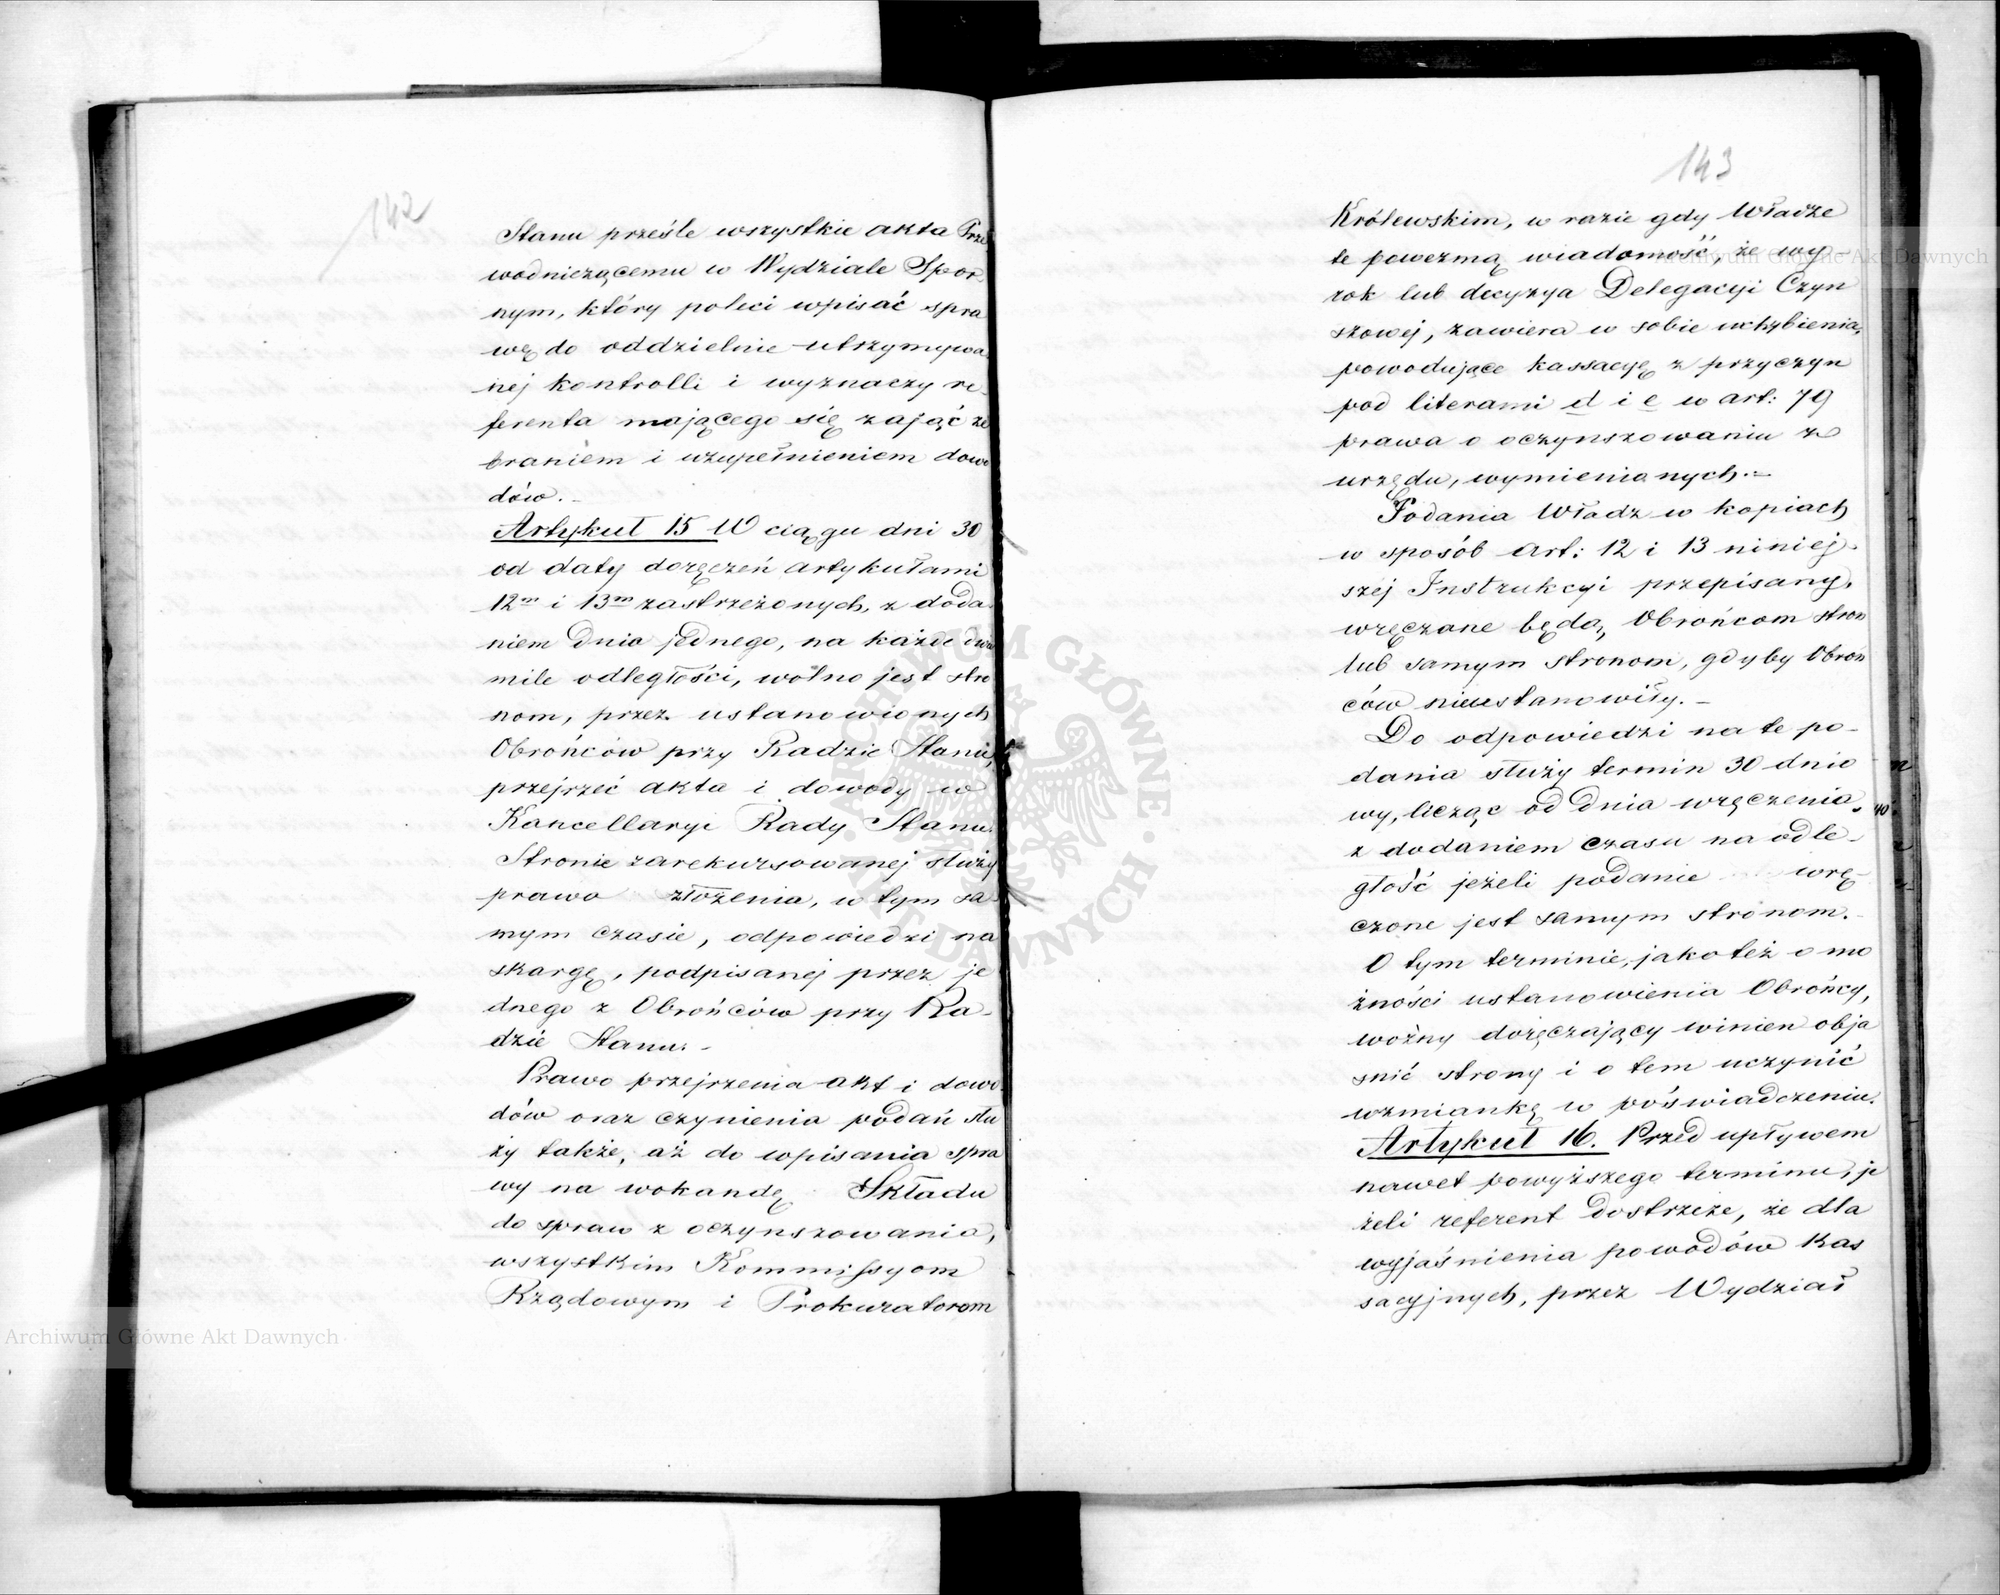 142
Stanu prześle wszystkie akta Prze
wodniczącemu w Wydziale Spor-
nym, który poleci wpisać spra
wę do oddzielnie utrzymywa
nej kontrolli i wyznaczy re-
ferenta mającego się zająć ze
braniem i uzupełnieniem dowo
dów.-
Artykuł 15 W ciągu dni 30
od daty doręczeń artykułami
12m i 13m zastrzeżonych, z doda-
niem dnia jednego, na każde dwie
mile odległości, wolno jest stro
nom, przez ustanowionych
Obrońców przy Radzie Stanu,
przejrzeć akta i dowody w
Kancellaryi Rady Stanu.
Stronie zarekursowanej służy
prawo złożenia, w tym sa-
mym czasie, odpowiedzi na
skargę, podpisanej przez je
dnego z Obrońców przy Ra-
dzie Stanu.-
Prawo przejrzenia akt i dowo
dów oraz czynienia podań słu
ży także, aż do wpisania spra
wy na wokandę Składu
do spraw z oczynszowania,
wszystkim Kommissyom
Rządowym i Prokuratorom
143
Królewskim, w razie gdy Władze
te powezmą wiadomość, że wy-
rok lub decyzya Delegacyi Czyn
szowej, zawiera w sobie uchybienia,
powodujące kassacyę z przyczyn
pod literami d i e w art: 79
prawa o oczynszowaniu z
urzędu, wymienianych.-
Podania Władz w kopiach
w sposób art: 12 i 13 niniej-
szej Instrukcyi przepisany,
wręczone będą, Obrońcom stron
lub samym stronom, gdyby Obroń
ców nieustanowiły.-
Do odpowiedzi na te po-
dania służy termin 30 dnio
wy, licząc od dnia wręczenia,
z dodaniem czasu na odle-
głość jeżeli podanie wrę-
czone jest samym stronom.-
O tym terminie, jakoteż o mo
żności ustanowienia Obrońcy,
woźny doręczający winien obja
śnić strony i o tem uczynić
wzmiankę w poświadczeniu.
Artykuł 16. Przed upływem
nawet powyższego terminu, je
żeli referent dostrzeże, że dla
wyjaśnienia powodów kas
sacyjnych, przez Wydział
ARCHIWUM GŁÓWNE AKT DAWNYCH
Archiwum Główne Akt Dawnych
Archiwum Główne Akt Dawnych